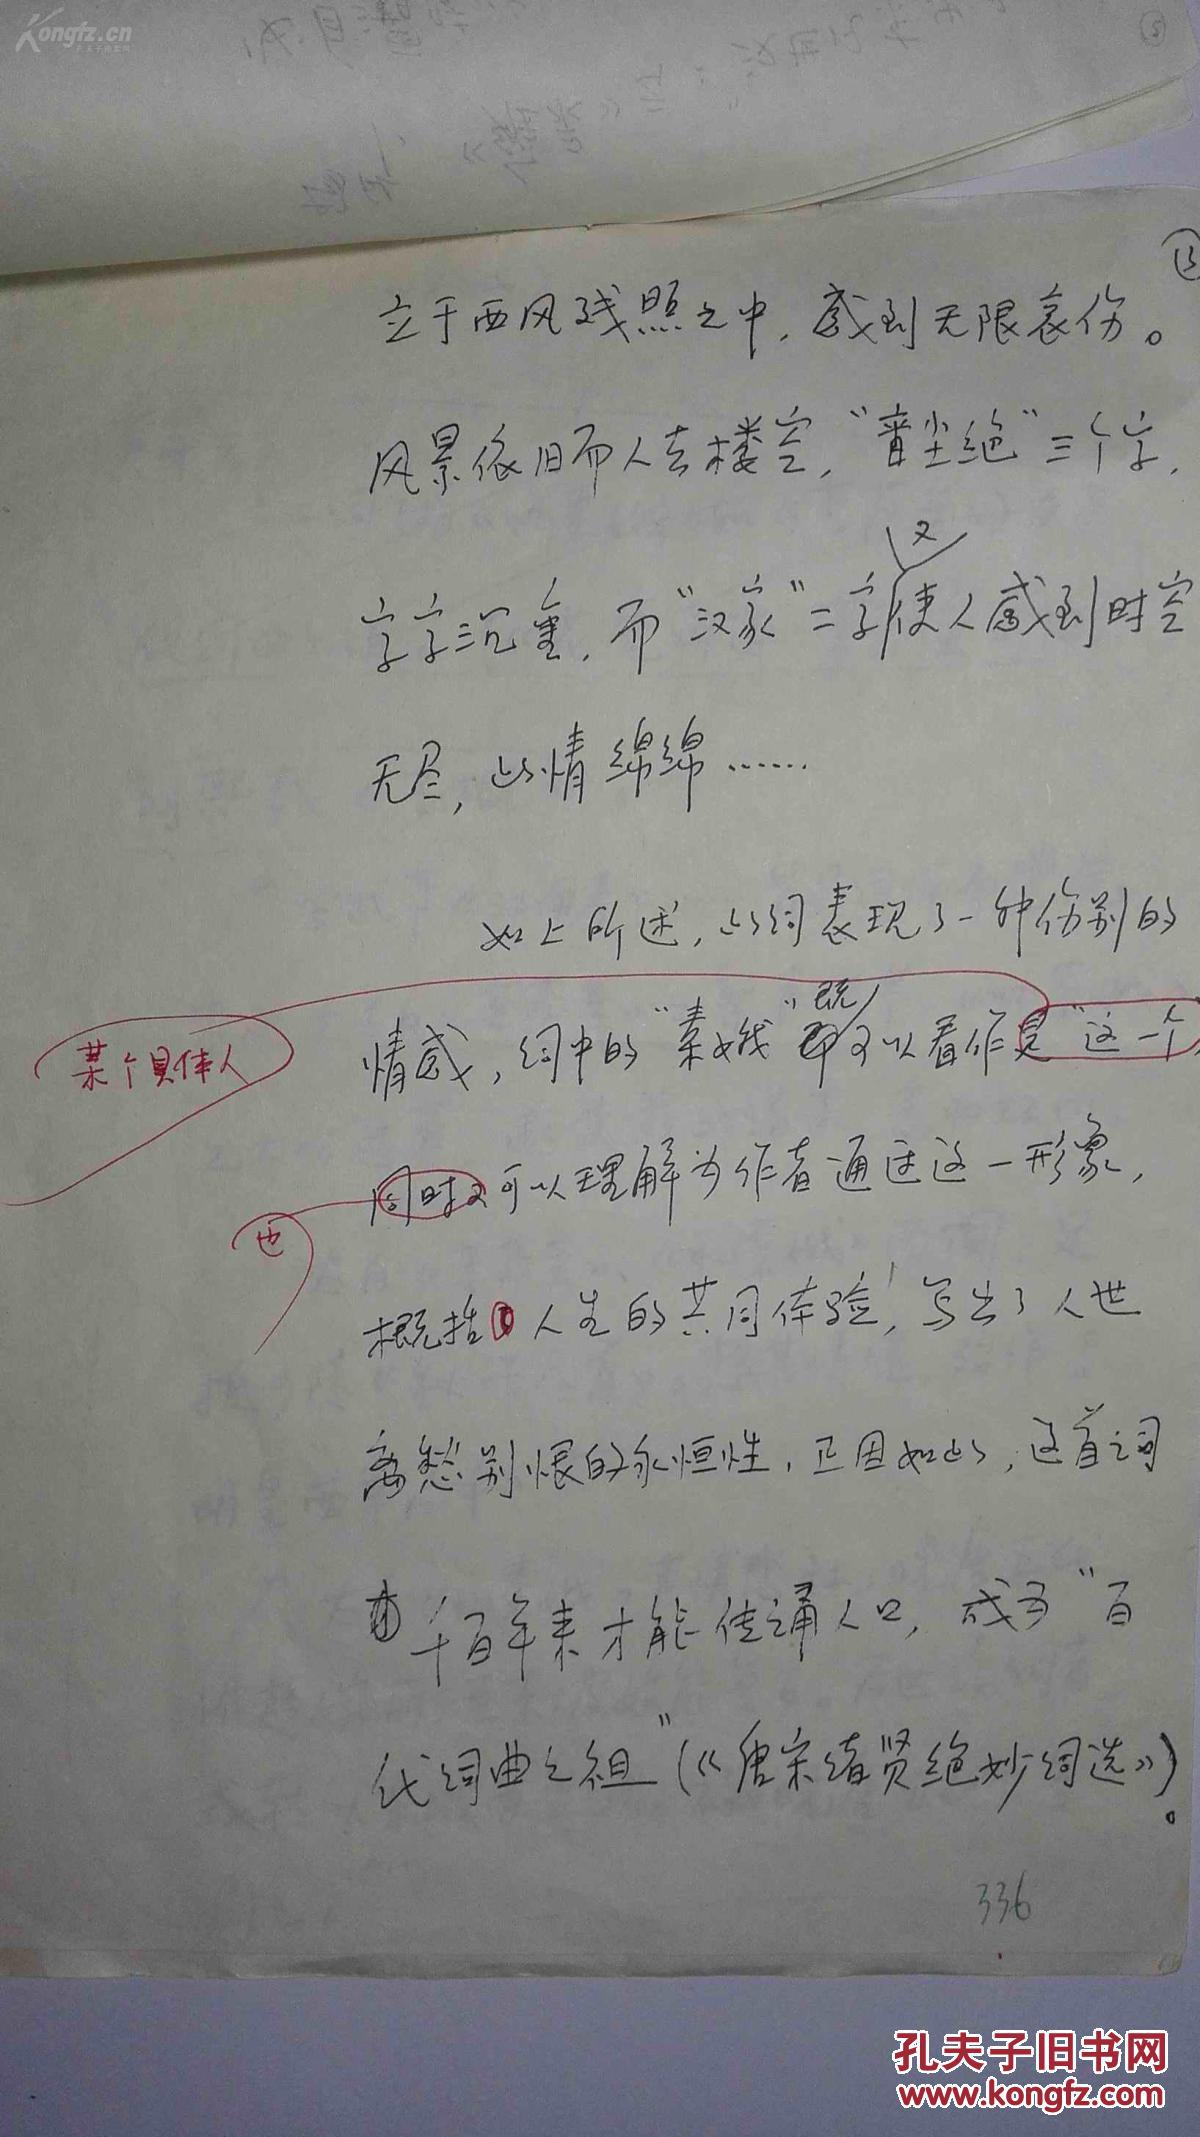 Kongfz.cn
孔夫子旧书网
⑤
⑬
立于西风残照之中，感到无限哀伤。
风景依旧而人去楼空，“音尘绝”三个字，
又
字字沉重，而“汉家”二字使人感到时空
无尽，此情绵绵……
如上所述，此词表现了一种伤别的
既
某个具体人
情感，词中的“秦娥”可以看作是“这一个
同时又可以理解为作者通过这一形象，
也
概括人生的共同体验，写出了人世
离愁别恨的永恒性，正因如此，这首词
千百年来才能传诵人口，成为“百
代词曲之祖”（《唐宋诸贤绝妙词选》）。
336
孔夫子旧书网
www.kongfz.com